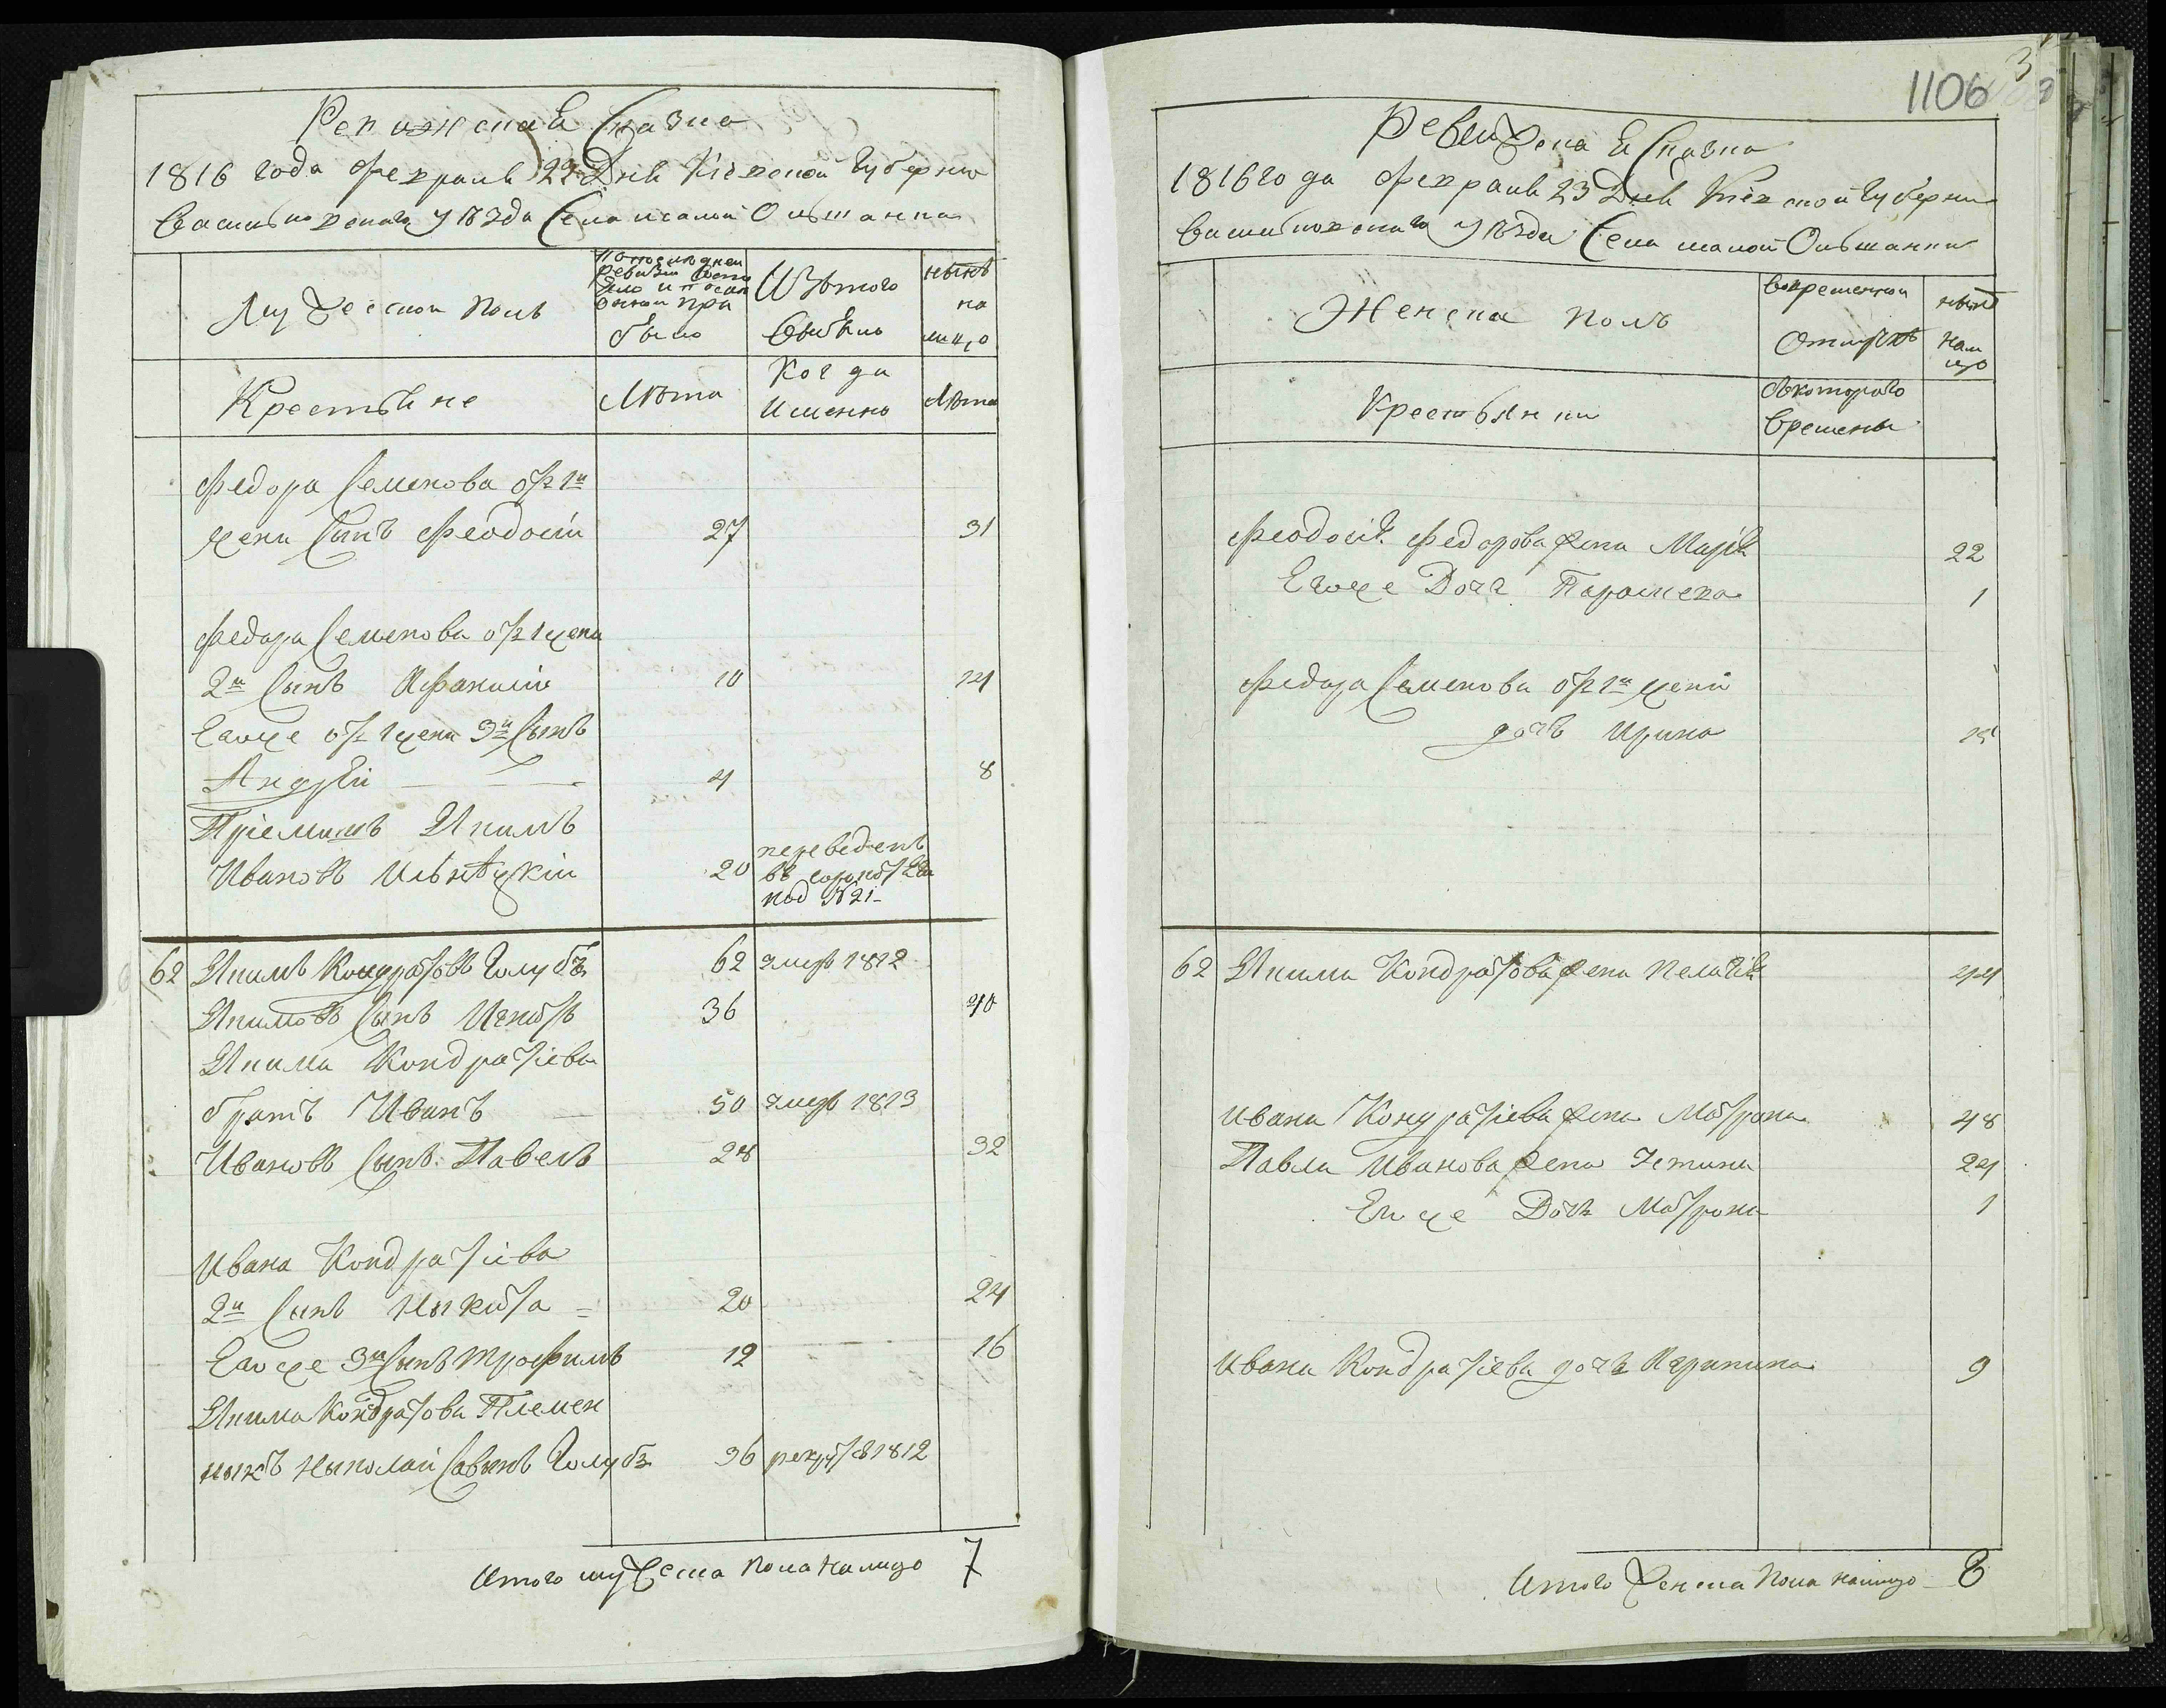 Ревижская Сказка
1816 года февраля 23 Дня Кіевской Губернии
Васильковскаго уѣзда Села малой Ольшанки
Мужеской полъ
По последней ревизии состояло и после оной прибыло
Изъ того выбыло
нынѣ на лицо
Крестьяне
Лѣта
Когда именно
Лѣта
Федора Семенова от 1й
жены Сынъ Феодосій 27 31
Федора Семенова от 1 жены
2й Сынъ Афанасій 10 14
Егоже от 1 жены 3й Сынъ
Андрей 4 8
Пріемышъ Якимъ
Ивановъ 20 переведенъ
въ
под №21
62 Якимъ Кондратовъ Голубъ 62 умер 1812
Якимовъ Сынъ Игнатъ 36 40
Якима Кондратіева
братъ Иванъ 50 умер 1813
Ивановъ Сынъ Павелъ 28 32
Ивана Кондратіева
2й Сынъ Ныкита 20 24
Егоже 3й Сынъ Трофимъ 12 16
Якима Кондратова Племен
ныкъ Ныколай Савынъ Голубъ 36 рекрут въ 1812
Итого мужеска пола налицо 7
1106
3
Ревизкая Сказка
1816 года февраля 23 Дня Кіевской Губернии
Васильковскаго уѣзда Села малой Ольшанки
Женска полъ
Во временной отлучкѣ
нынѣ на лицо
Крестьянки
Съ котораго времены
Феодосія Федорова жена Марія 22
Егоже Дочь Параскева 1
Федора Семенова от 1й жены
дочь Ирина 15
62 Якима Кондратова жена Пелагія 44
Ивана Кондратіева жена Матрона 48
Павла Иванова жена Устина 24
Егоже Дочь Матрона 1
Ивана Кондратіева дочь Агрипина 9
Итого Женска пола налицо 8